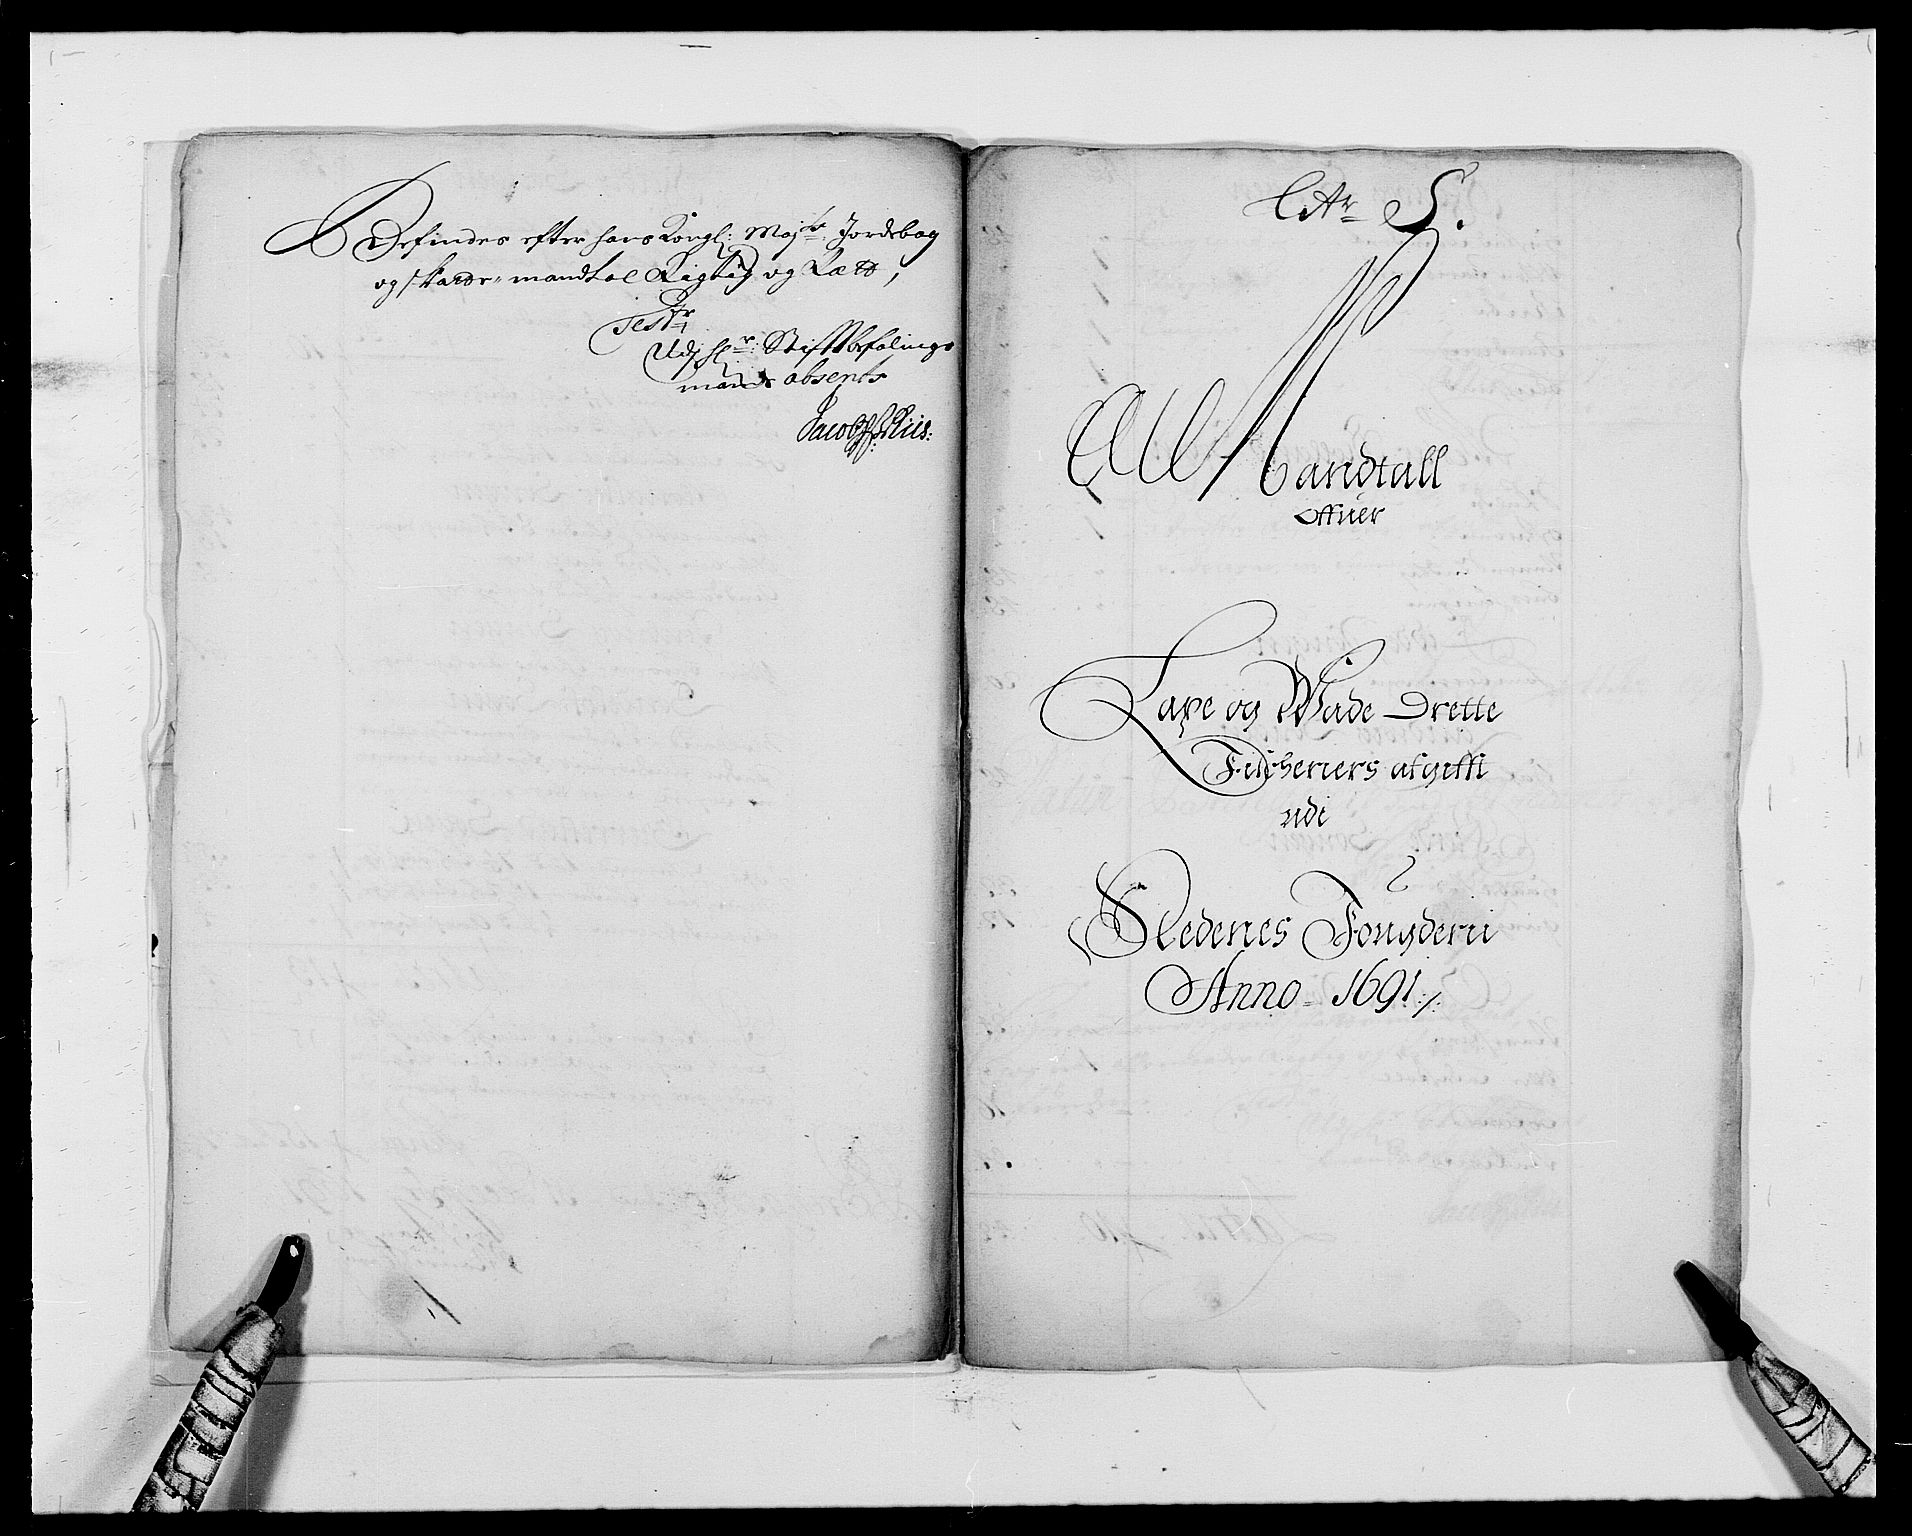 Befindes efter hans Kongl: Mayts: Jordebog
og skatte-mandtal Rigtig og Rætt,
Test:
Udj hr: Stiftbefalings
mands absents
Jacob Riis:
Litr S.
Mandtall
offuer
Laxe og Wade Drette
Fischeriers afgifft
udi
Nedenes Fougderii
Anno 1691 /: